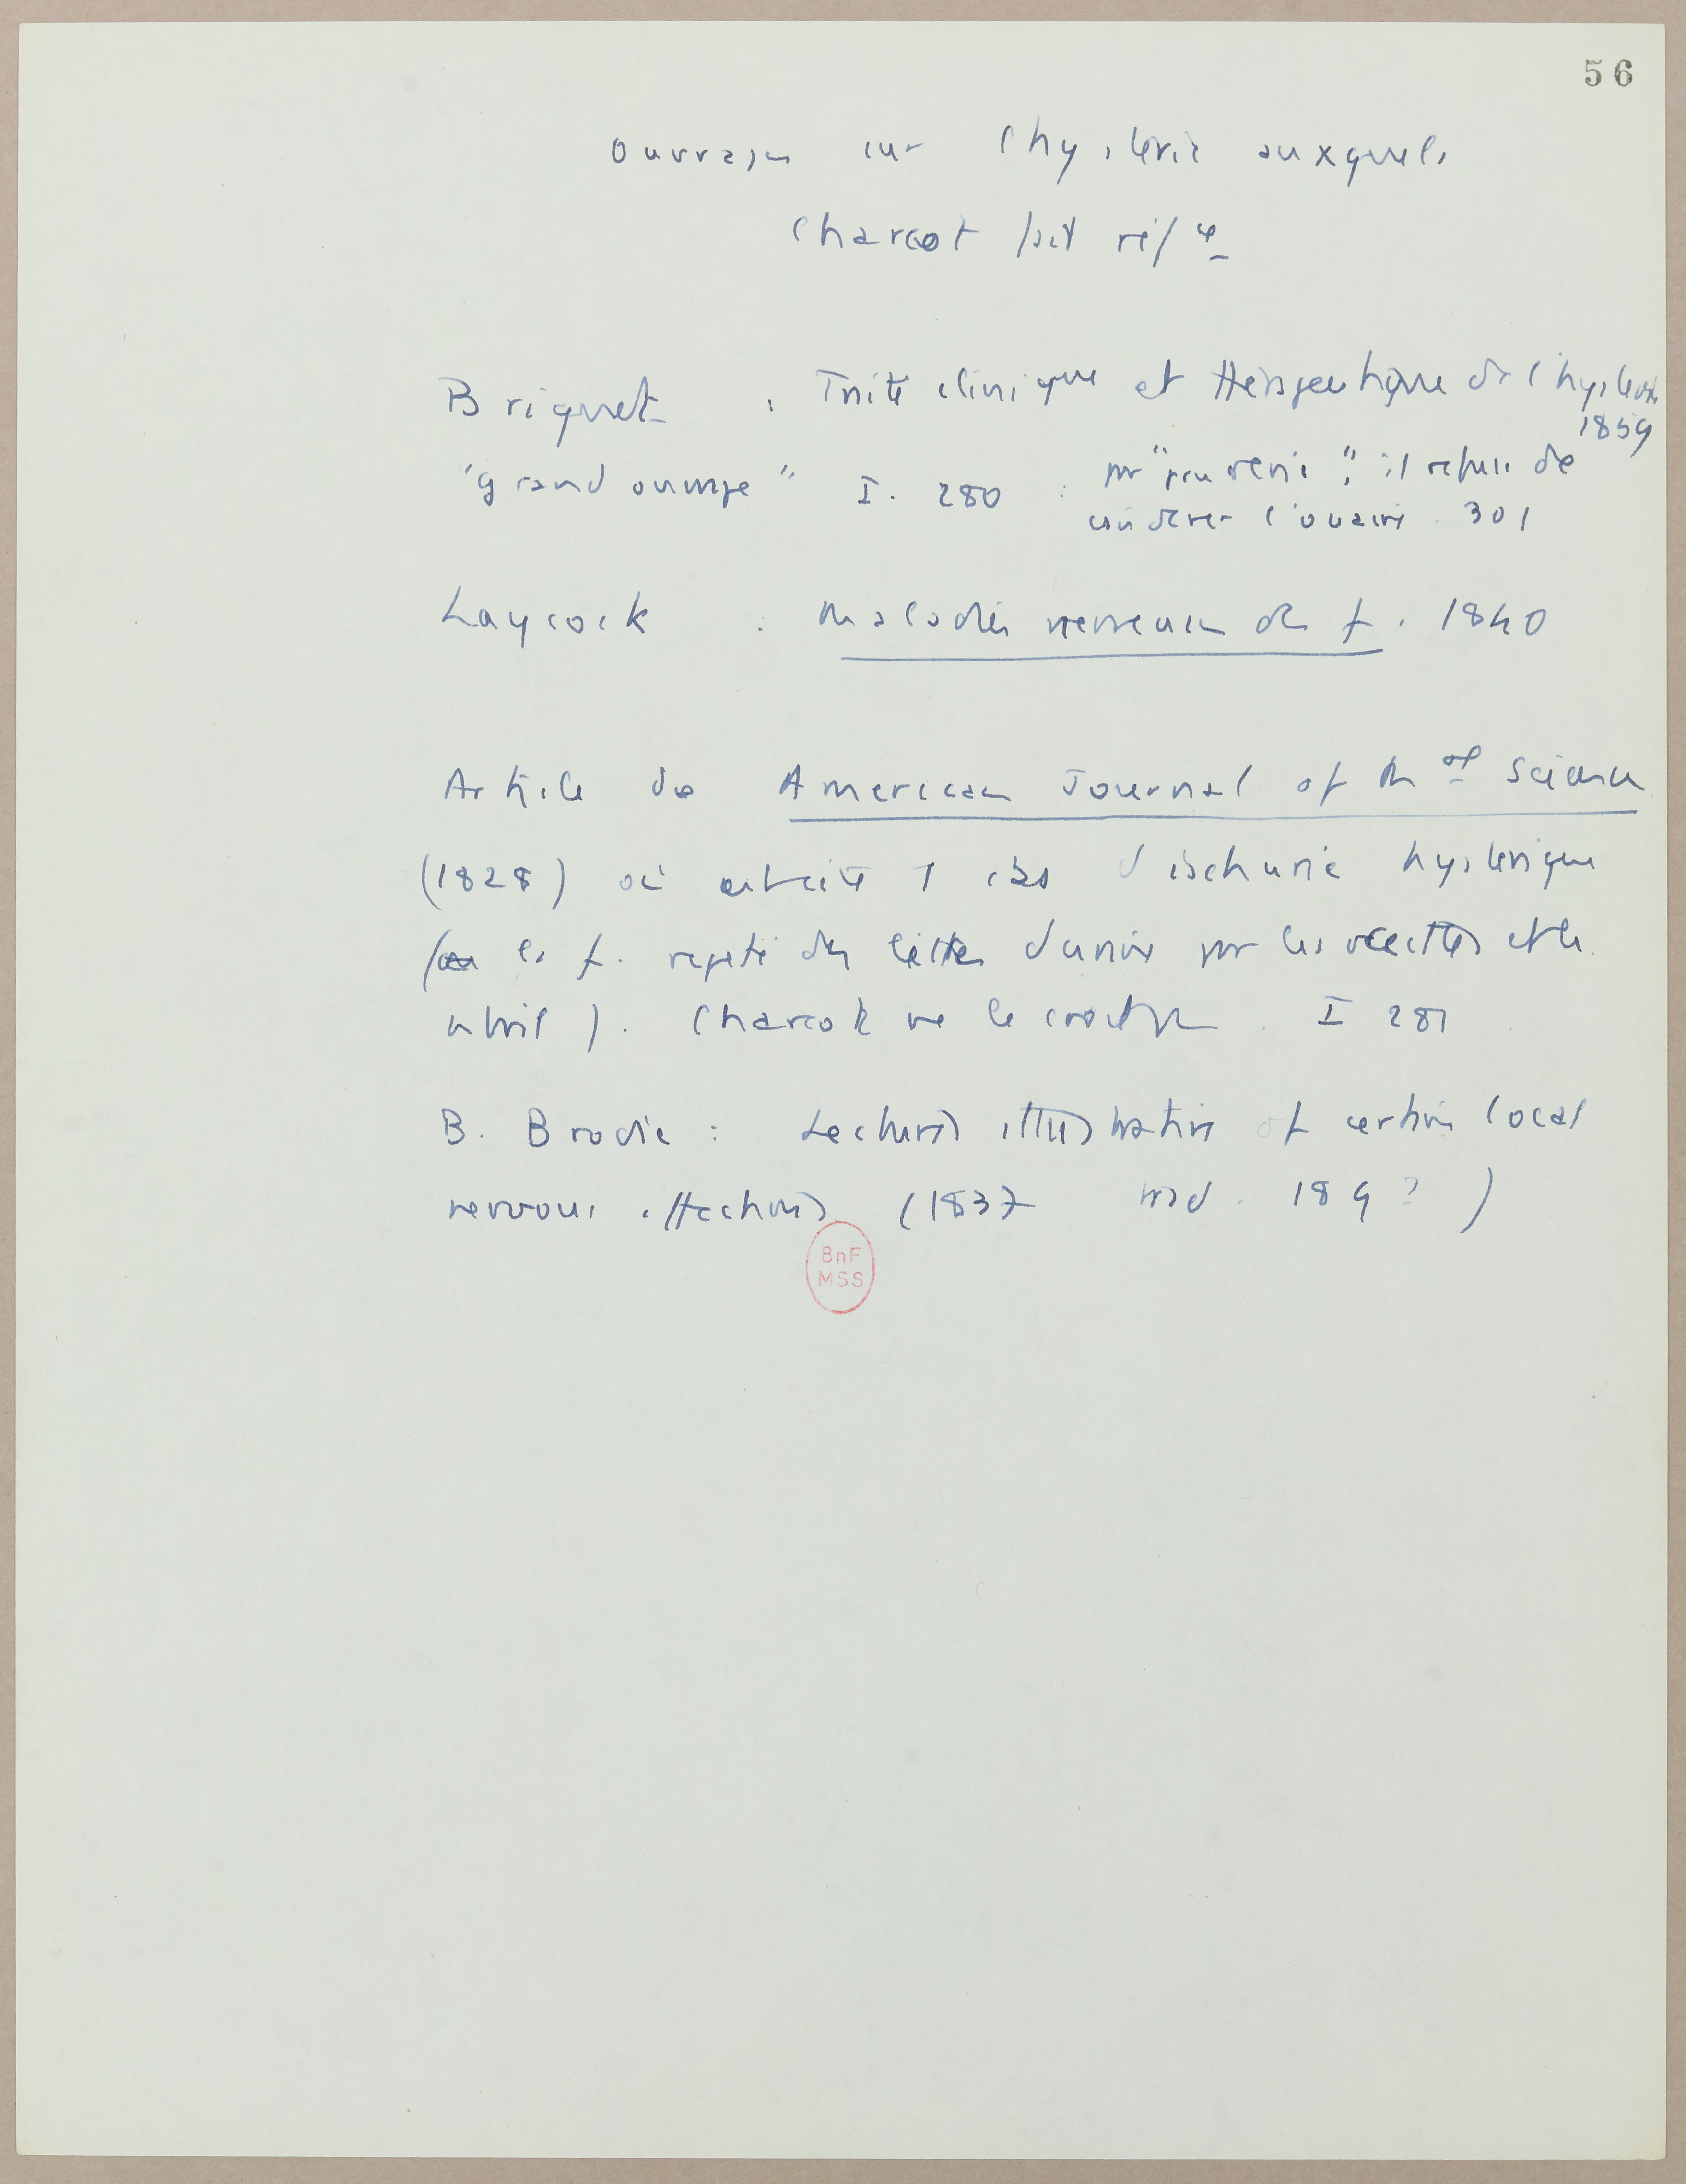 56
Ouvrages sur l'hystérie auxquels
Charcot fait réfce
Briquet : Traité clinique et thérapeutique de l'hystérie
1859
"grand ouvrage" I. 280 : par "pruderie", il refuse de
considérer l'ovaire. 301
Laycock : Maladies nerveuses des f. 1840
Article do American Journal of Mal Science
(1828) où est cité 1 cas d'ischurie hystérique
(la f. rejeté des litres d'urine par les oreilles et le
nbril). Charcot ne le croit pas. I 281
B. Brodie : Lectures illustrative of certain local
nervous affections (1837 trad. 189?)
BnF
MSS